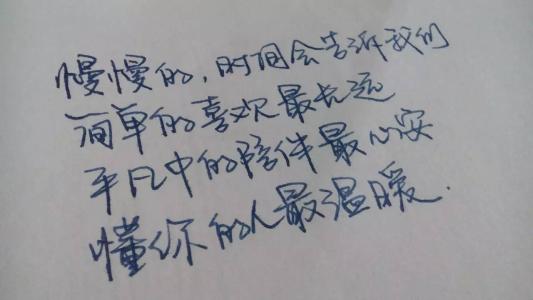 慢慢的，时间会告诉我们
简单的喜欢最长远
平凡中的陪伴最心安
懂你的人最温暖.